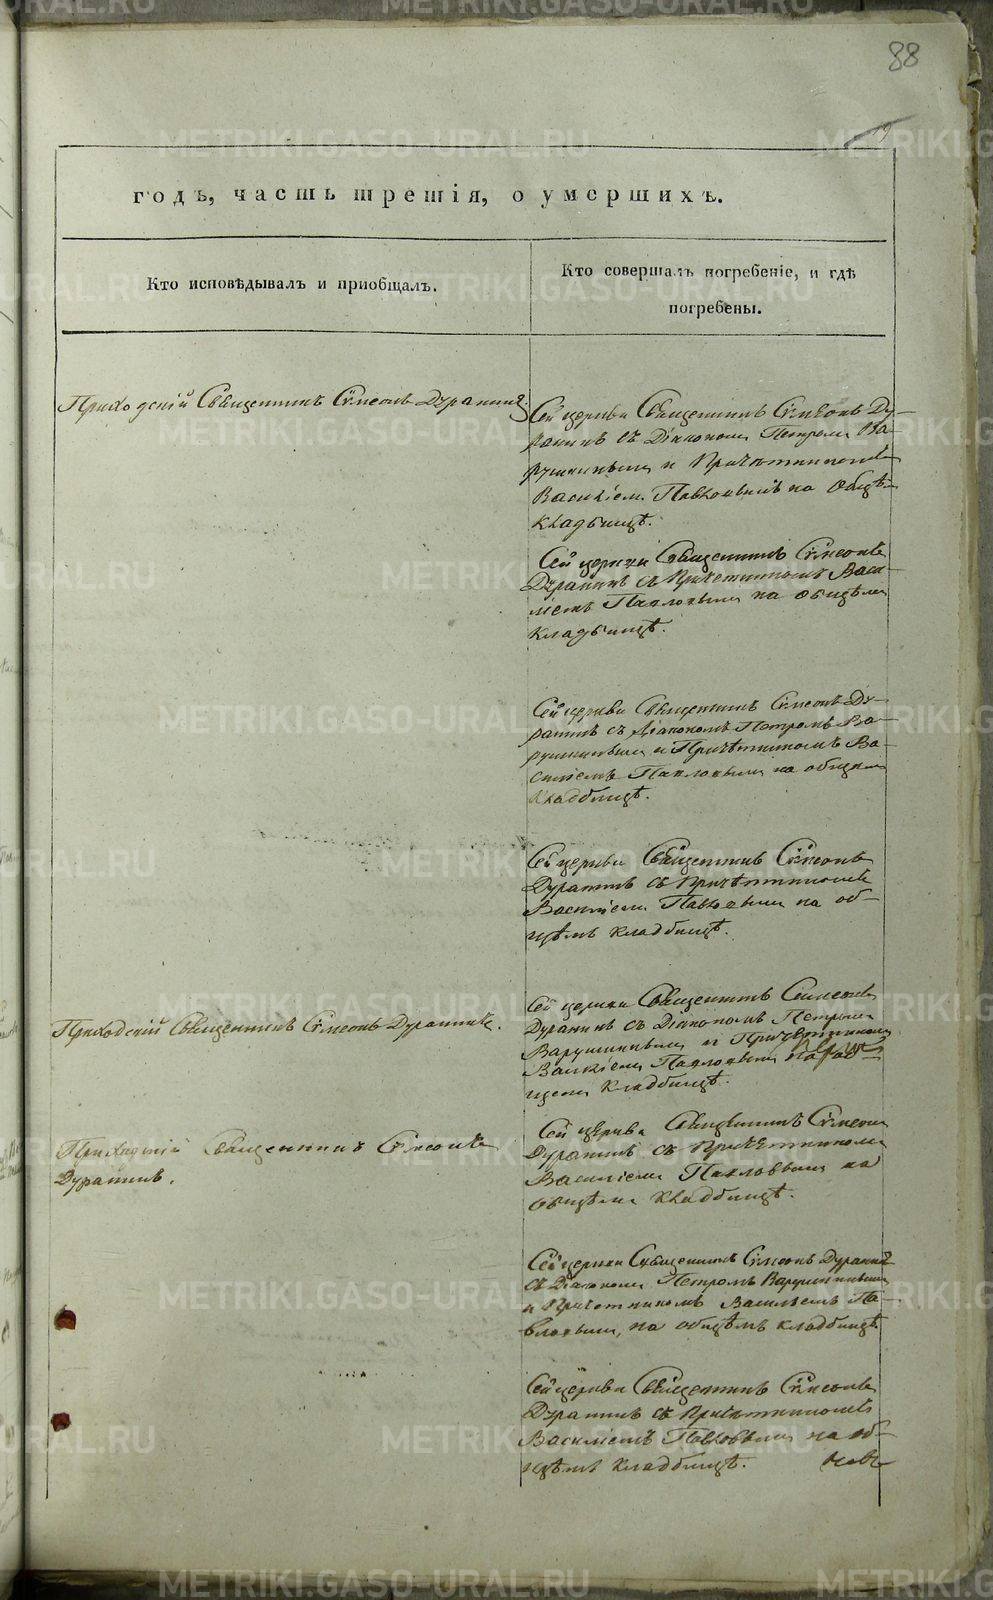 88
19
годъ, часть третія, о умершихъ.
Кто исповѣдывалъ и пріобщалъ.
Кто совершалъ погребеніе, и гдѣ
погребены.
Приходскій Священникъ Сѵмеонъ Дуранинъ.
Сей церкви Священникъ Сѵмеонъ Ду-
ранинъ съ Діакономъ Петромъ Ва-
рушкинымъ и Причетникомъ
Василіемъ Павловымъ на общемъ
кладбищѣ.
Сей церкви Священникъ Сѵмеонъ
Дуранинъ съ Причетникомъ Васи-
ліемъ Павловымъ на общемъ
кладбищѣ.
Сей церкви Священникъ Сѵмеонъ Ду-
ранинъ съ Діакономъ Петромъ Ва-
рушкинымъ и Причетникомъ Ва-
силіемъ Павловымъ на общемъ
кладбищѣ.
Сей церкви Священникъ Сѵмеонъ
Дуранинъ съ Причетникомъ
Василіемъ Павловымъ на об-
щѣмъ кладбищѣ.
Приходскій Священникъ Сѵмеонъ Дуранинъ.
Сей церкви Священникъ Симеонъ
Дуранинъ съ Діакономъ Петромъ
Варушкинымъ и Причетникомъ
Василіемъ Павловымъ на об-
щемъ кладбищѣ.
Приходскій Священникъ Сѵмеонъ
Дуранинъ.
Сей церкви Священникъ Сѵмеонъ
Дуранинъ съ Причетникомъ
Василіемъ Павловымъ на
общѣмъ кладбищѣ.
Сей церкви Священникъ Сѵмеонъ Дуранинъ
съ Діакономъ Петромъ Варушкинымъ
и Причетникомъ Васильемъ Па-
вловымъ, на общѣмъ кладбищѣ.
Сей церкви Священникъ Сѵмеонъ
Дуранинъ съ Причетникомъ
Василіемъ Павловымъ на об-
щѣмъ кладбищѣ.
METRIKI.GASO-URAL.RU